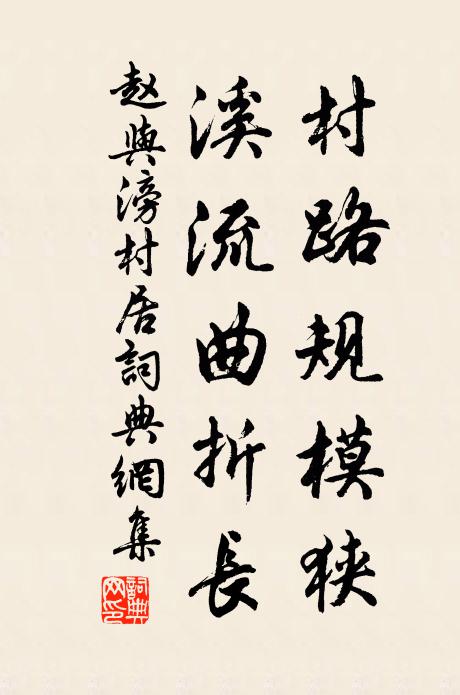 村路規模狹
溪流曲折長
趙與滂村居詞典網集
詞典網印